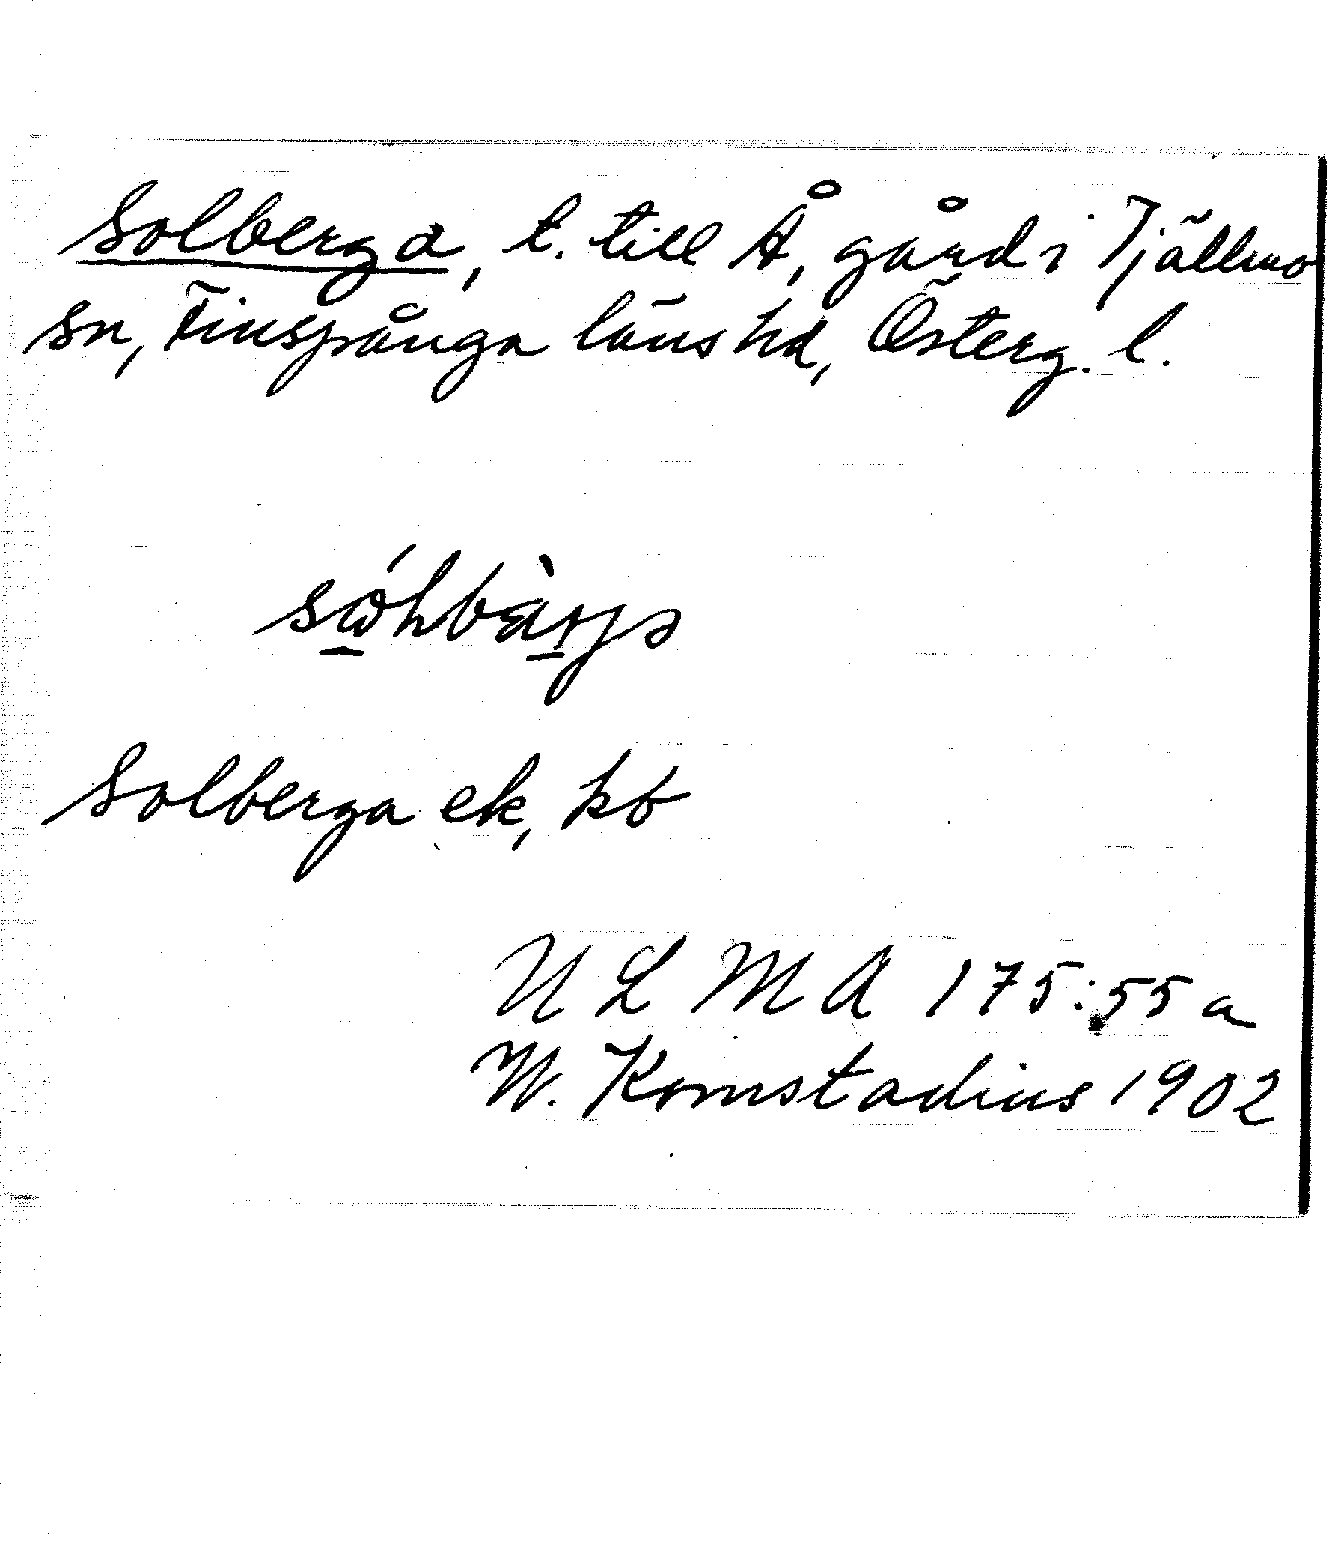 Solberga, t. till Å, gård i Tjällmo
sn, Finspånga läns hd, Österg. l.
Solberga ek, kb
ULMA 175:55 a
W. Komstadius 1902